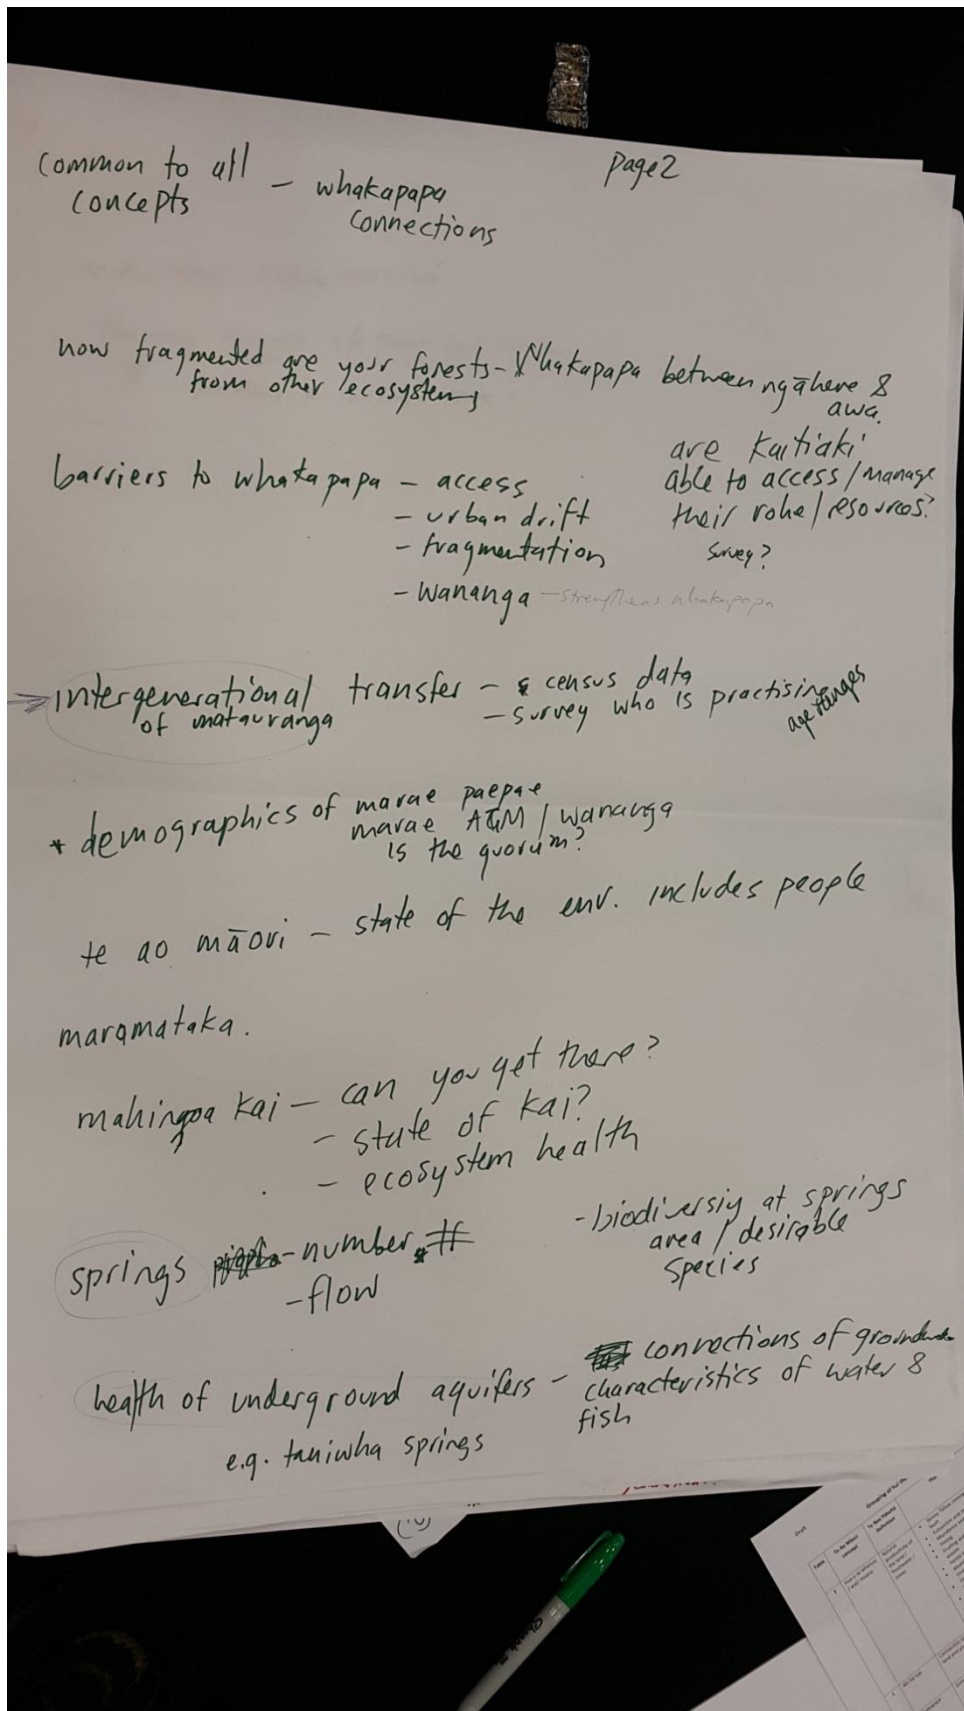 page2
common to all
concepts
– whakapapa
connections
how fragmented are your forests – Whakapapa between ngāhere &
from other ecosystems
awa.
barriers to whakapapa – access
– urban drift
– fragmentation
– wananga – strengthens whakapapa
are Kaitiaki
able to access / manage
their rohe / resources?
survey?
intergenerational transfer – census data
of matauranga
– survey who is practising
age ranges
* demographics of marae paepae
marae AGM / wananga
is the quorum?
te ao māori – state of the env. includes people
maramataka.
mahinga kai – can you get there?
– state of kai?
– ecosystem health
springs – number #
– flow
- biodiversiy at springs
area / desirable
species
health of underground aquifers –
e.g. taniwha springs
connections of groundwater
characteristics of water &
fish
Draft
Table